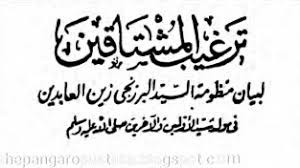 ترغيب المشتاقين
لبيان منظومة السيد البرزنجي زين العابدين
في مولد سيد الأولين والآخرين صلى الله عليه وسلم